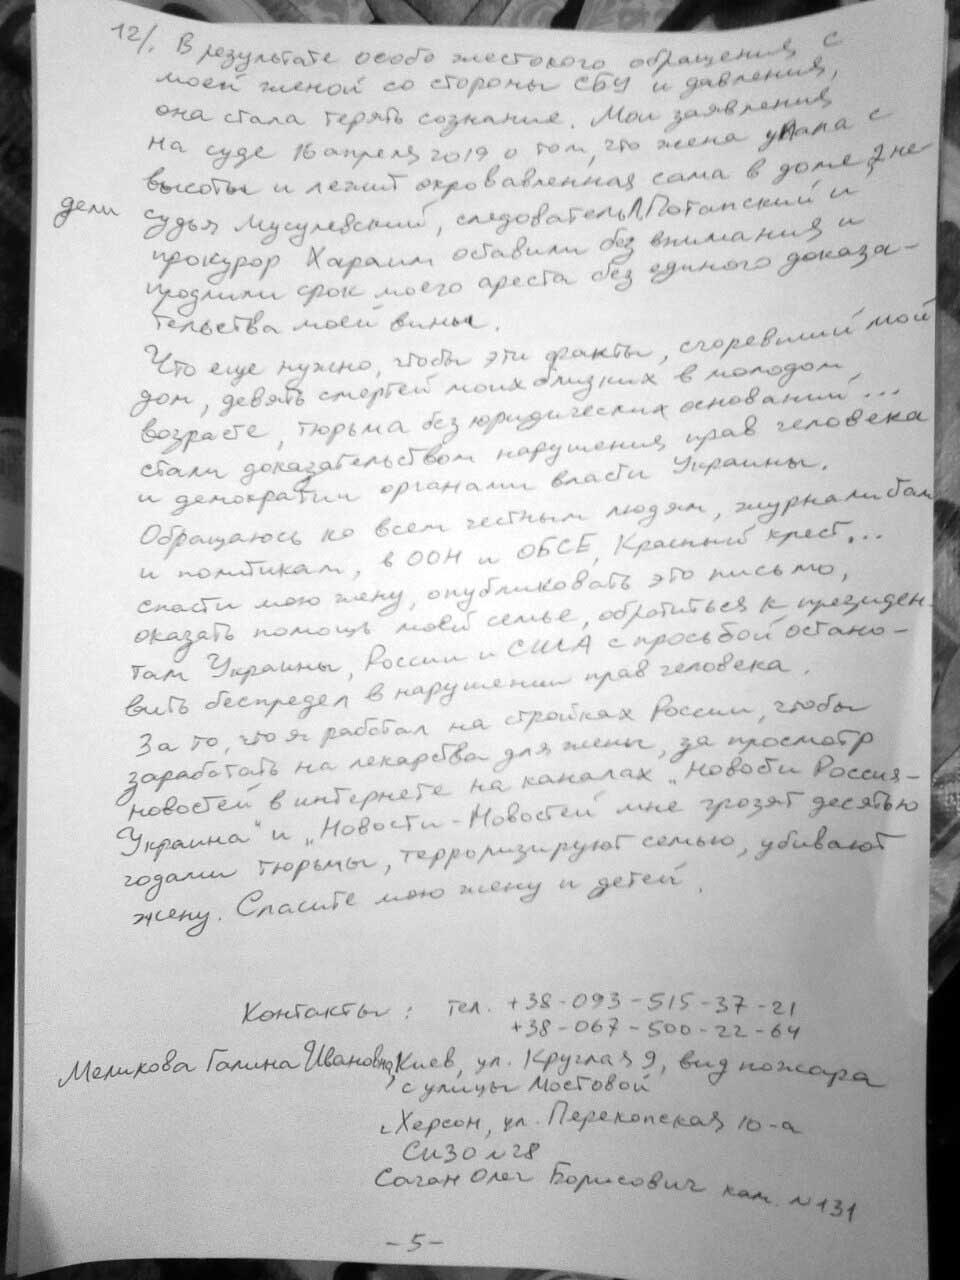 12/. В результате особо жестокого обращения с
моей женой со стороны СБУ и давления,
она стала терять сознание. Мои заявления
на суде 16 апреля 2019 о том, что жена упала с
высоты и лежит окровавленная сама в доме 2 не
дели судья Мусулевский, следователь Потапский и
прокурор Хараим оставили без внимания и
продлили срок моего ареста без единого доказа-
тельства моей вины.
Что еще нужно, чтобы эти факты, сгоревший мой
дом, девять смертей моих близких в молодом
возрасте, тюрьма без юридических оснований...
стали доказательством нарушения прав человека
и демократии органами власти Украины.
Обращаюсь ко всем честным людям, журналистам
и политикам, в ООН и ОБСЕ, Красный крест...
спасти мою жену, опубликовать это письмо,
оказать помощь моей семье, обратиться к президен-
там Украины, России и США с просьбой остано-
вить беспредел в нарушении прав человека.
За то, что я работал на стройках России, чтобы
заработать на лекарства для жены, за просмотр
новостей в интернете на каналах „Новости Россия-
Украина" и „Новости-Новостей мне грозят десятью
годами тюрьмы, терроризируют семью, убивают
жену. Спасите мою жену и детей.
Контакты: тел. +38-093-515-37-21
+38-067-500-22-64
Меликова Галина Ивановна, Киев, ул. Круглая 9, вид пожара
с улицы Мостовой
Херсон, ул. Перекопская 10-а
СИЗО №28
Саган Олег Борисович кам. №131
-5-